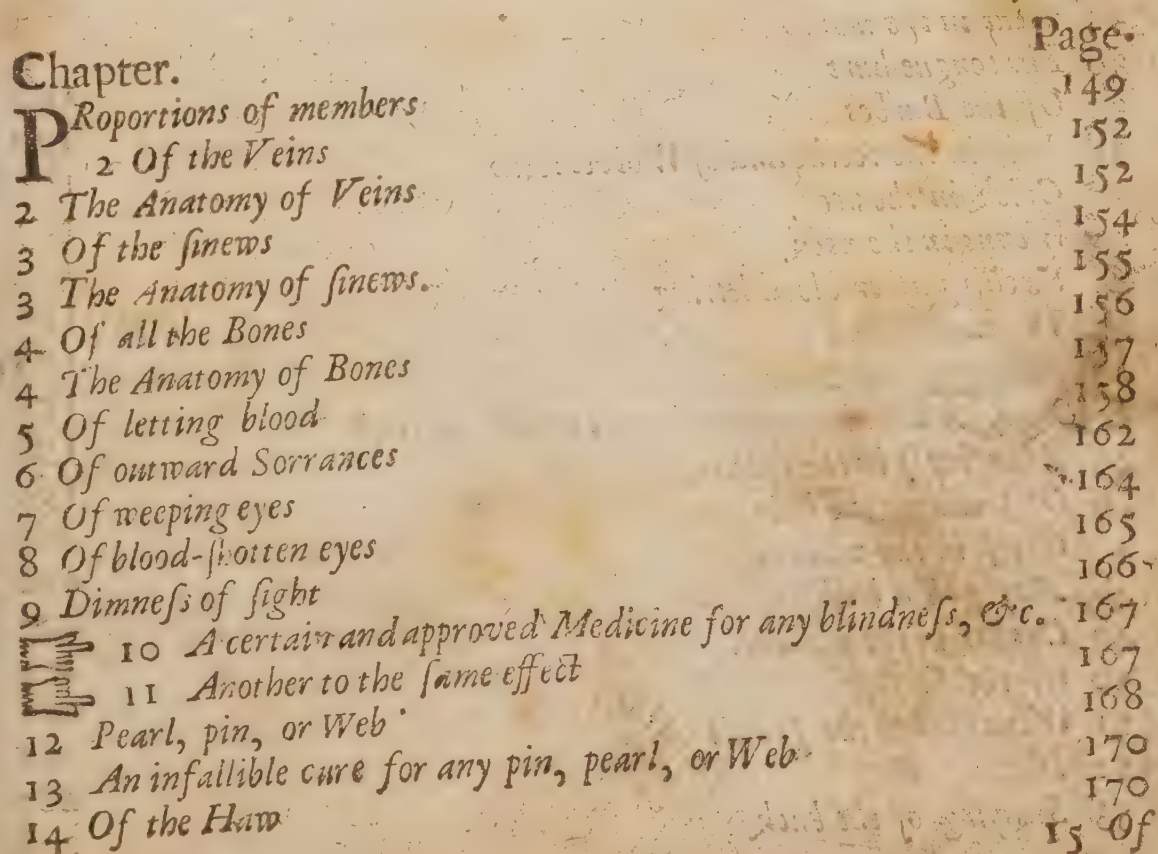 Chapter. Page.
PRoportions of members 149
2 Of the Veins 152
2 The Anatomy of Veins 152
3 Of the ſinews 154
3 The Anatomy of ſinews. 155
4 Of all the Bones 156
4 The Anatomy of Bones 157
5 Of letting blood 158
6 Of outward Sorrances 162
7 Of weeping eyes 164
8 Of blood-ſhotten eyes 165
9 Dimneſs of ſight 166
10 A certain and approved Medicine for any blindneſs, &c. 167
11 Another to the ſame effect 167
12 Pearl, pin, or Web 168
13 An infallible cure for any pin, pearl, or Web 170
14 Of the Haw 170
15 Of